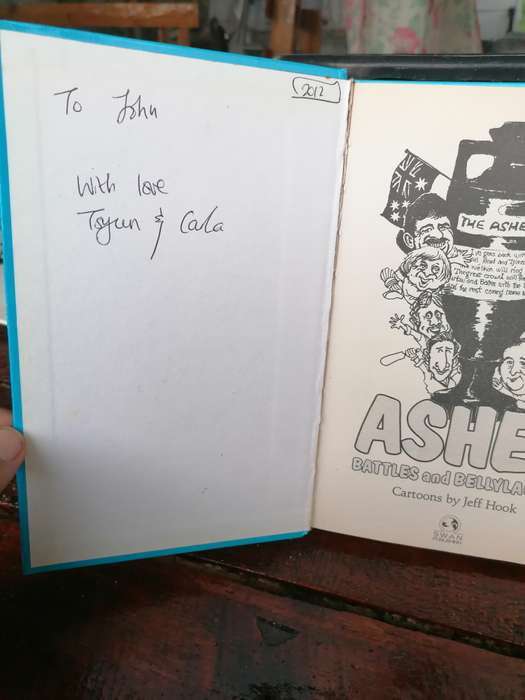 2012
To John
With love
& Carla
THE ASHE
ASHE
BATTLES and BELLYLA
Cartoons by Jeff Hook
SWAN
PUBLISHING